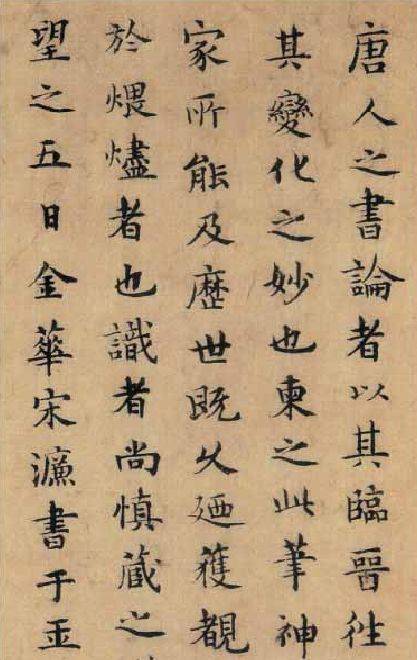 唐人之書論者以其臨晉往
其變化之妙也柬之此筆神
家所能及歷世既久廼獲覩
於煨燼者也識者尚慎藏之
望之五日金華宋濂書于玉